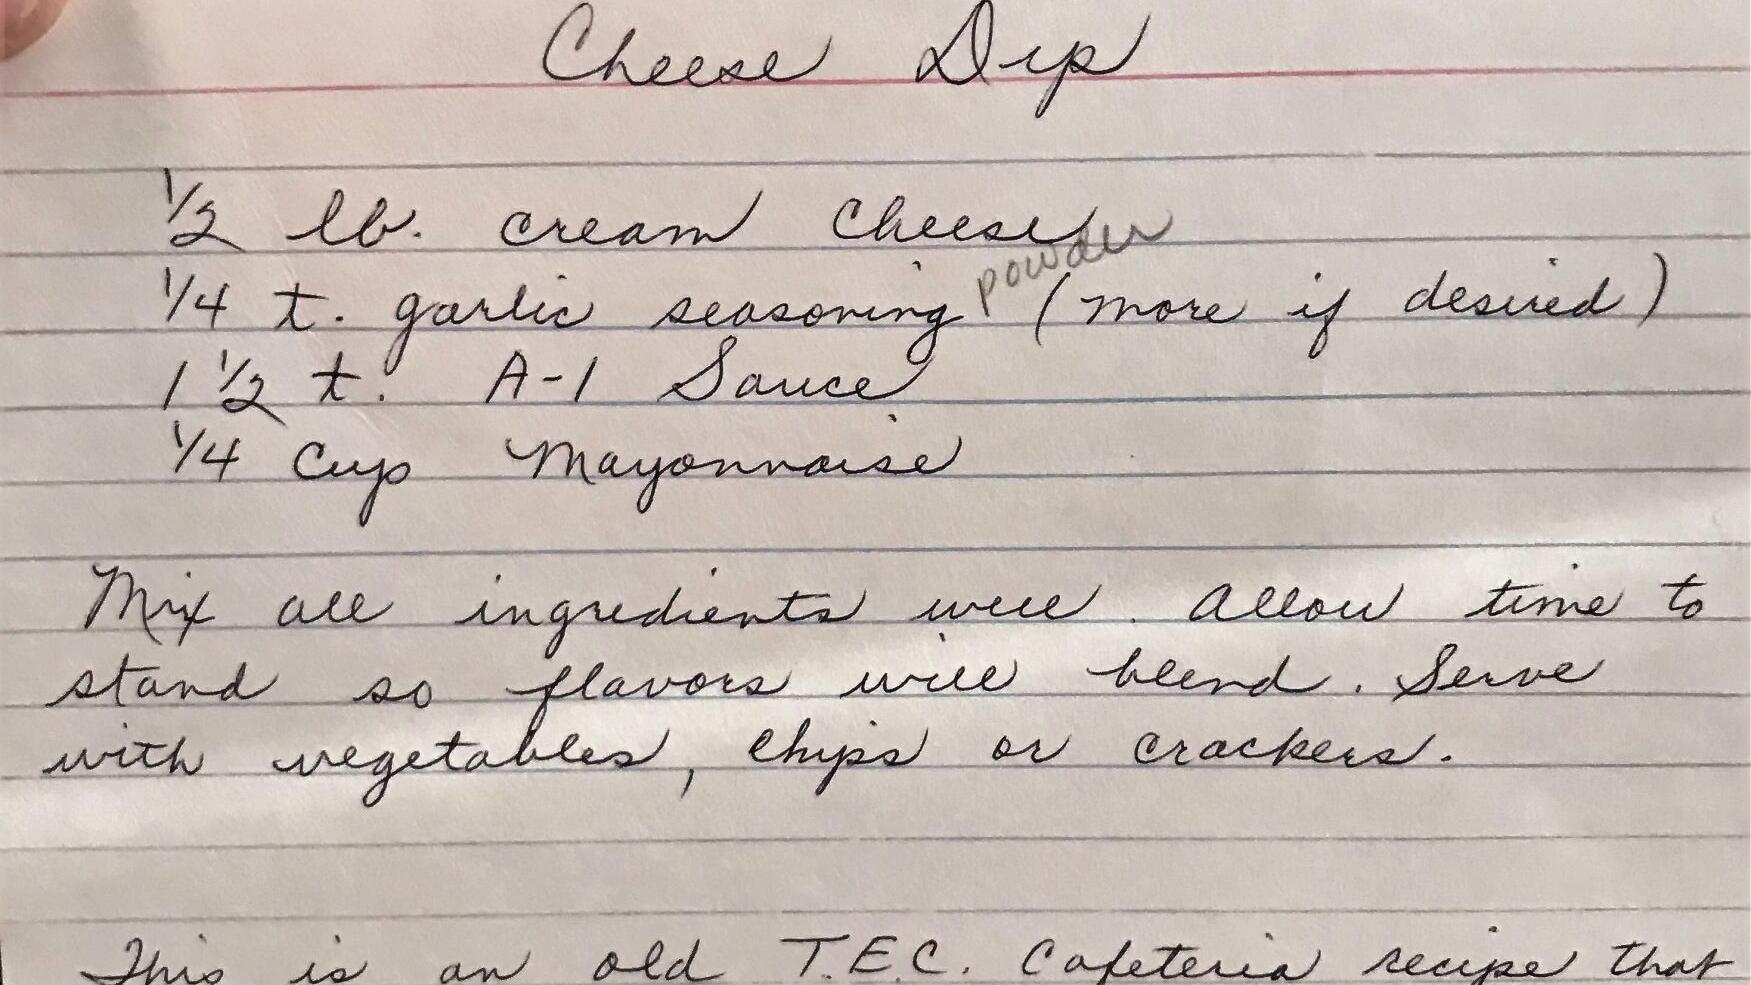 Cheese Dip
1/2 lb. cream cheese
powder
1/4 t. garlic seasoning (more if desired)
1 1/2 t. A-1 Sauce
1/4 cup Mayonnaise
Mix all ingredients well. Allow time to
stand so flavors will blend. Serve
with vegetables, chips or crackers.
This is an old T.E.C. Cafeteria recipe that